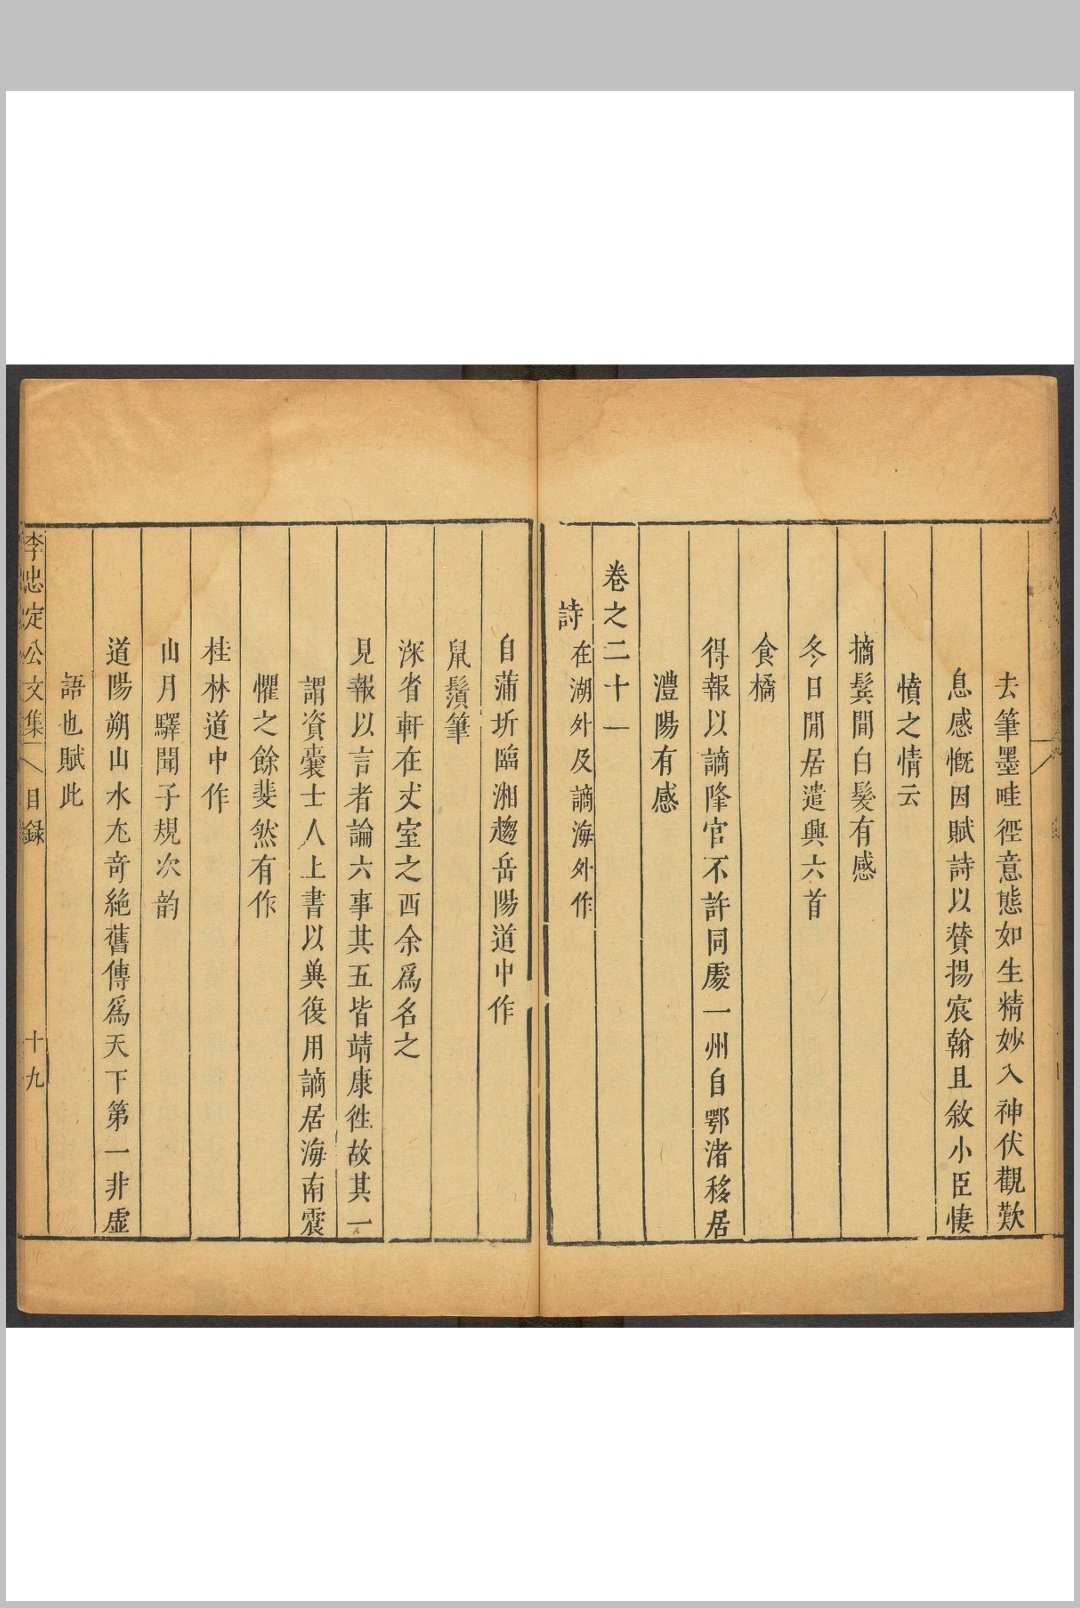 去筆墨畦徑意態如生精妙入神伏觀歎
息感慨因賦詩以贊揚宸翰且敘小臣悽
憤之情云
摘鬓間白髪有感
冬日閒居遣興六首
食橘
得報以謫降官不許同處一州自鄂渚移居
澧陽有感
卷之二十一
詩在湖外及謫海外作
自蒲圻臨湘趨岳陽道中作
鼠鬚筆
深省軒在丈室之西余爲名之
見報以言者論六事其五皆靖康徃故其一
謂資囊士人上書以兾復用謫居海南震
懼之餘斐然有作
桂林道中作
山月驛聞子規次韵
道陽朔山水尤奇絶舊傳爲天下第一非虛
語也賦此
李忠定公文集 目録 十九